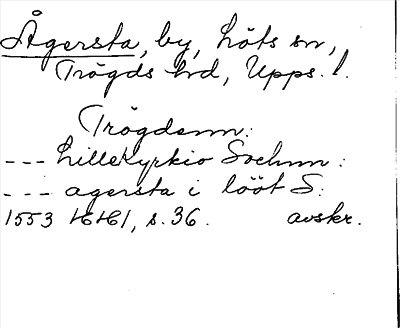 Ågersta, by, Löts sn,
Trögds hd, Upps. l.
Trögdenn:
--- Lillekyrkio Sochnn:
--- agersta i lööt S:
1553 HH1, s. 36. avskr.